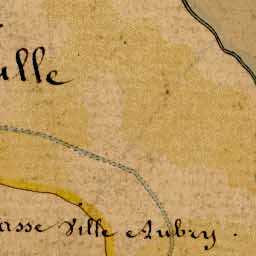 ulle
asse Ville Aubry .